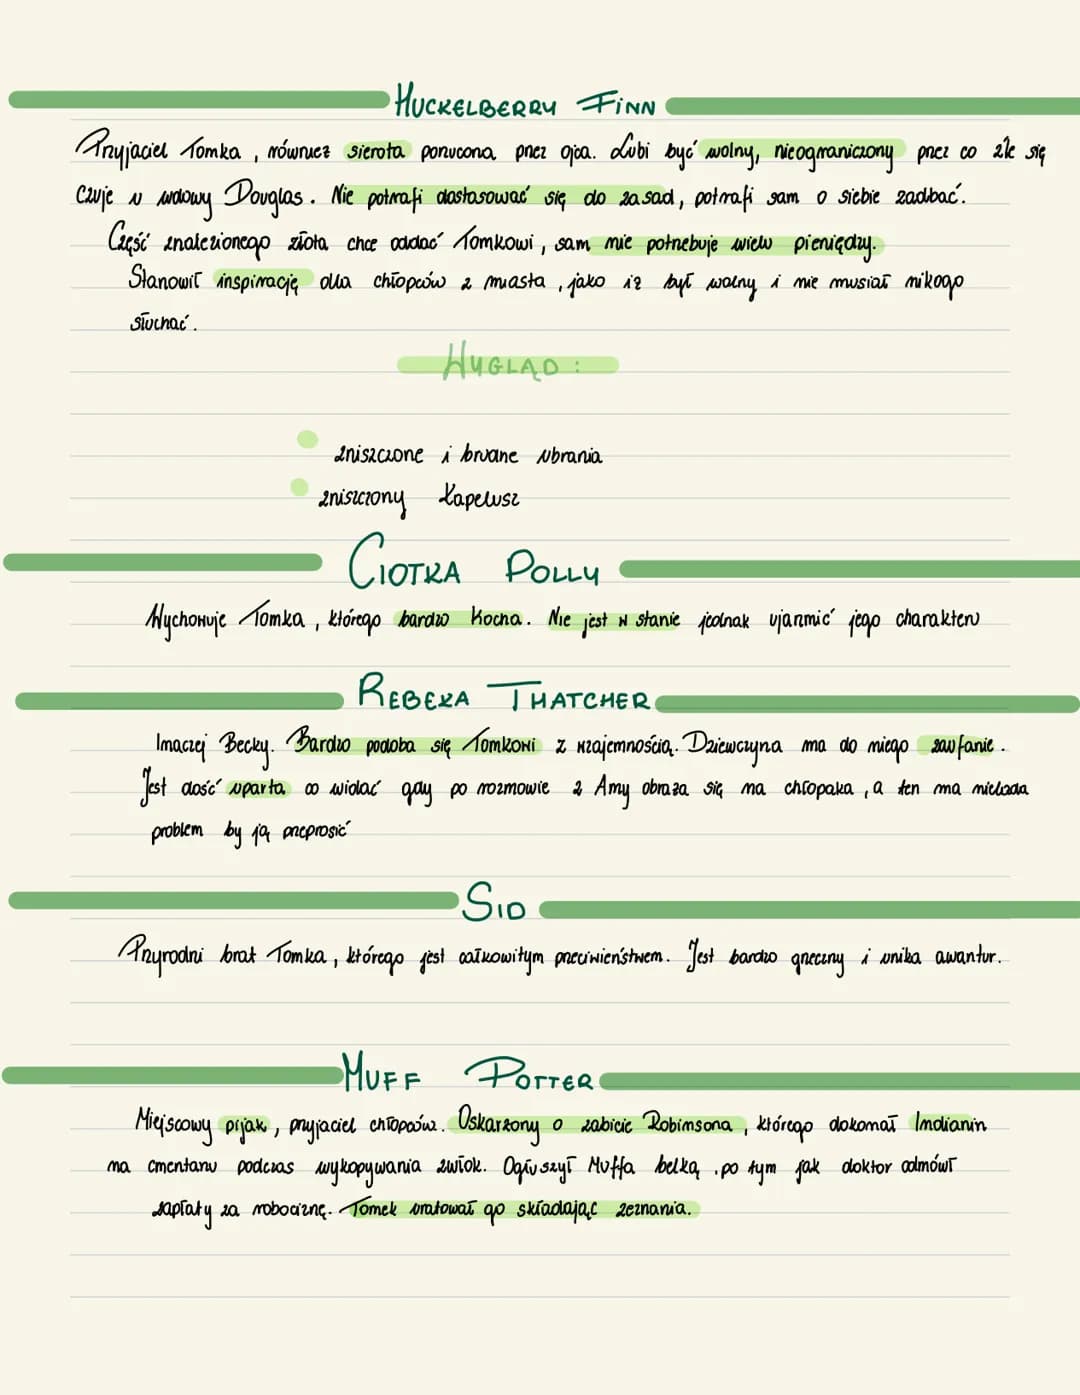 HUCKELBERRY FINN
Przyjaciel Tomka, również sierota porzucona przez ojca. Lubi być wolny, nieograniczony przez co źle się
czuje u wdowy Douglas. Nie potrafi dostosować się do zasad, potrafi sam o siebie zadbać.
Część znalezionego złota chce oddać Tomkowi, sam nie potrzebuje wielu pieniędzy.
Stanowił inspirację dla chłopców z miasta, jako iż był wolny i nie musiał nikogo
słuchać.
WYGLĄD:
zniszczone i brudne ubrania
zniszczony kapelusz
CIOTKA POLLY
Wychowuje Tomka, którego bardzo kocha. Nie jest w stanie jednak ujarzmić jego charakteru
REBEKA THATCHER
Inaczej Becky. Bardzo podoba się Tomkowi z wzajemnością. Dziewczyna ma do niego zaufanie.
Jest dość uparta co widać gdy po rozmowie z Amy obraza się na chłopaka, a ten ma nielada
problem by ją przeprosić
SID
Przyrodni brat Tomka, którego jest całkowitym przeciwieństwem. Jest bardzo grzeczny i unika awantur.
MUFF POTTER
Miejscowy pijak, przyjaciel chłopców. Oskarżony o zabicie Robinsona, którego dokonał Indianin
na cmentarzu podczas wykopywania zwłok. Ogłuszył Muffa belką, po tym jak doktor odmówił
zapłaty za robociznę. Tomek uratował go składając zeznania.